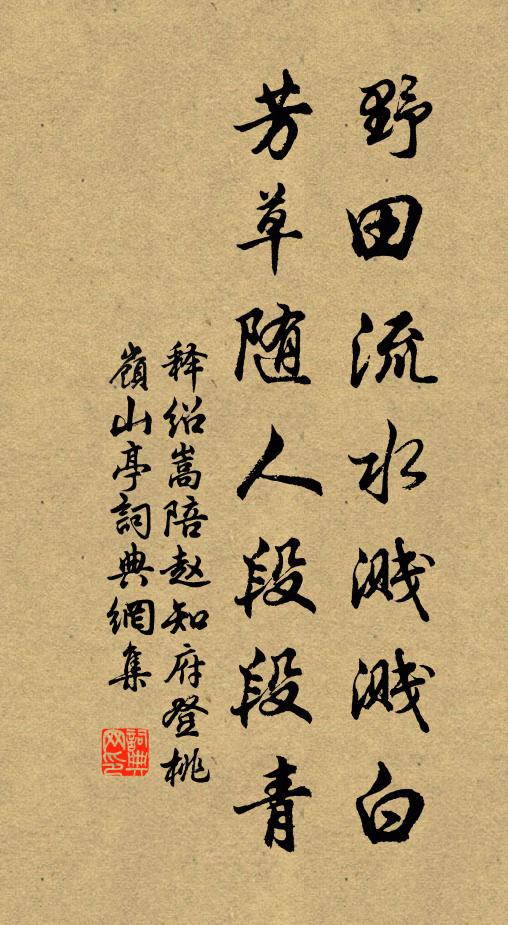 野田流水溅溅白
芳草随人段段青
释绍嵩陪赵知府登桃
嶺山亭詞典網集
詞典
网